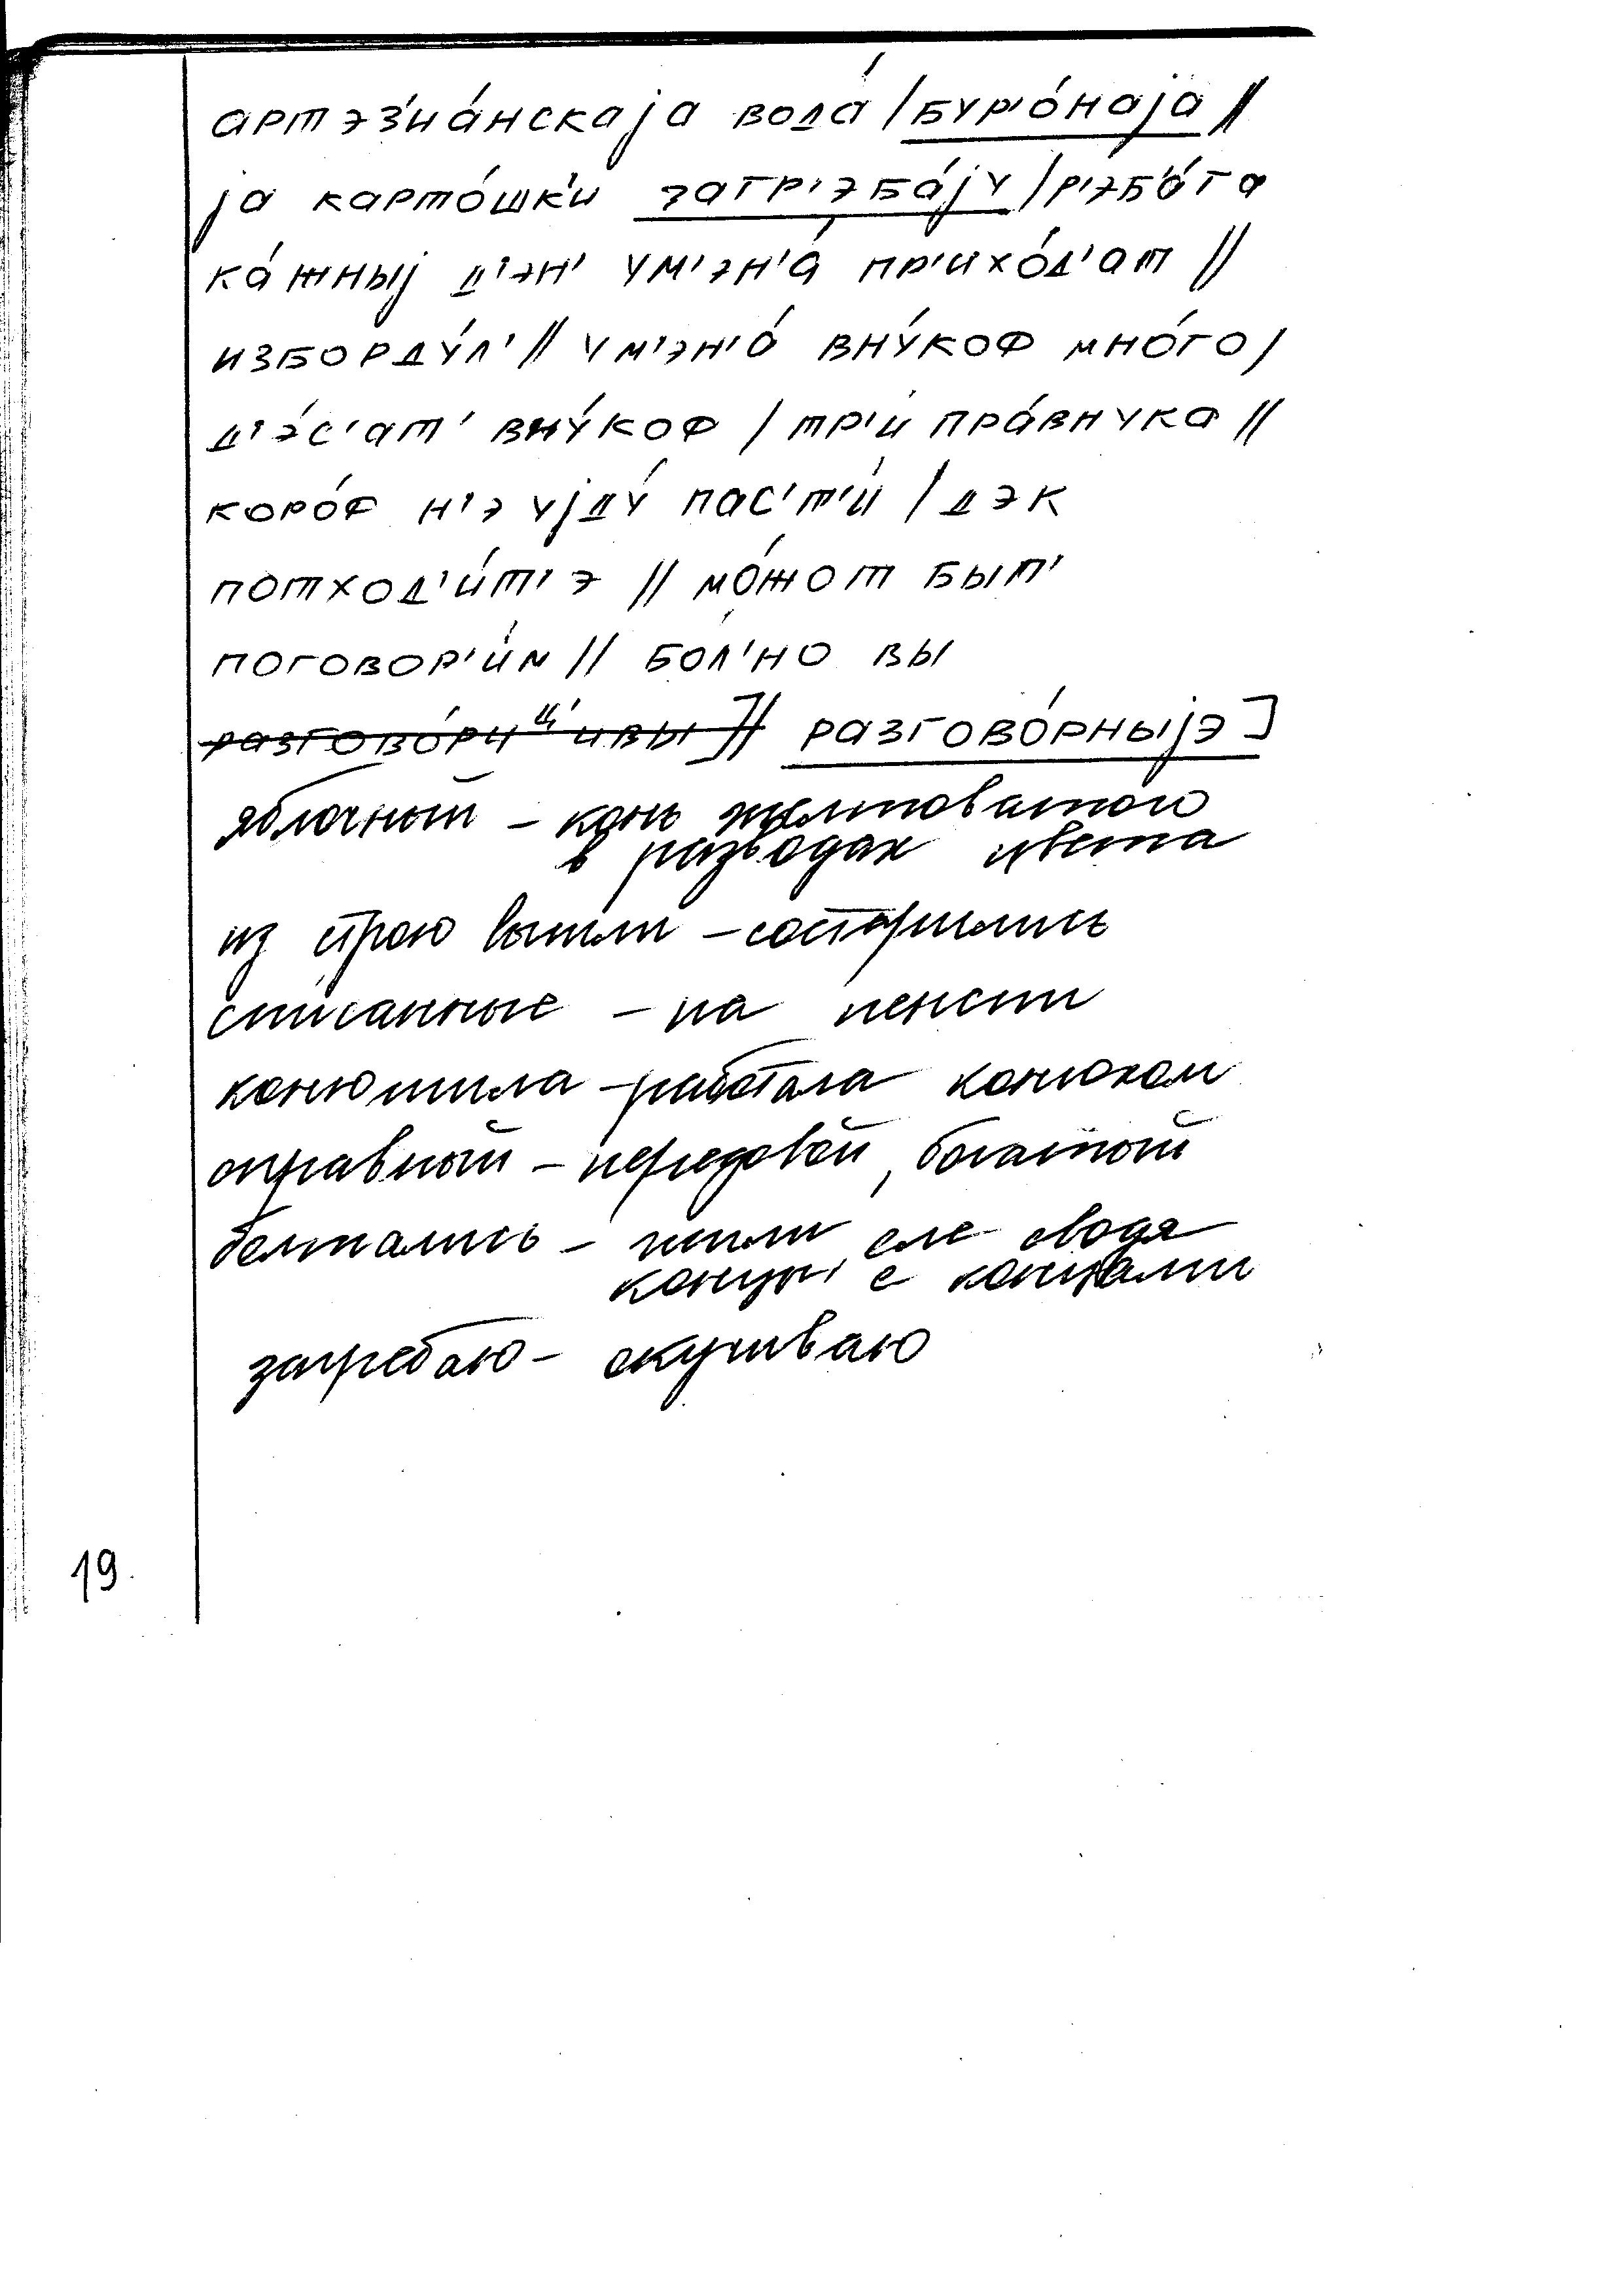 артэз'иа́нскаjа вода́ / бур'о́наjа //
jа карто́шк'и загр'эба́jу / р'эб'а́та
ка́жныj д'эн' ум'эн'а́ пр'ихо́д'ат //
изборду́л' // ум'эн'а́ вну́коф мно́го /
д'э́с'ат' вну́коф / тр'и пра́внука //
коро́ф н'э уjду́ пас'т'и́ / дэк
потход'и́т'э // мо́жот быт'
поговор'и́м // бо́л'но вы
разгово́рныjэ]
яблочный – конь желтоватого
в разводах цвета
из строю вышли – состарились
списанные – на пенсии
конюшила – работала конюхом
справный – передовой, богатый
болтались – жили еле сводя
концы с концами
загребаю – окучиваю
19.